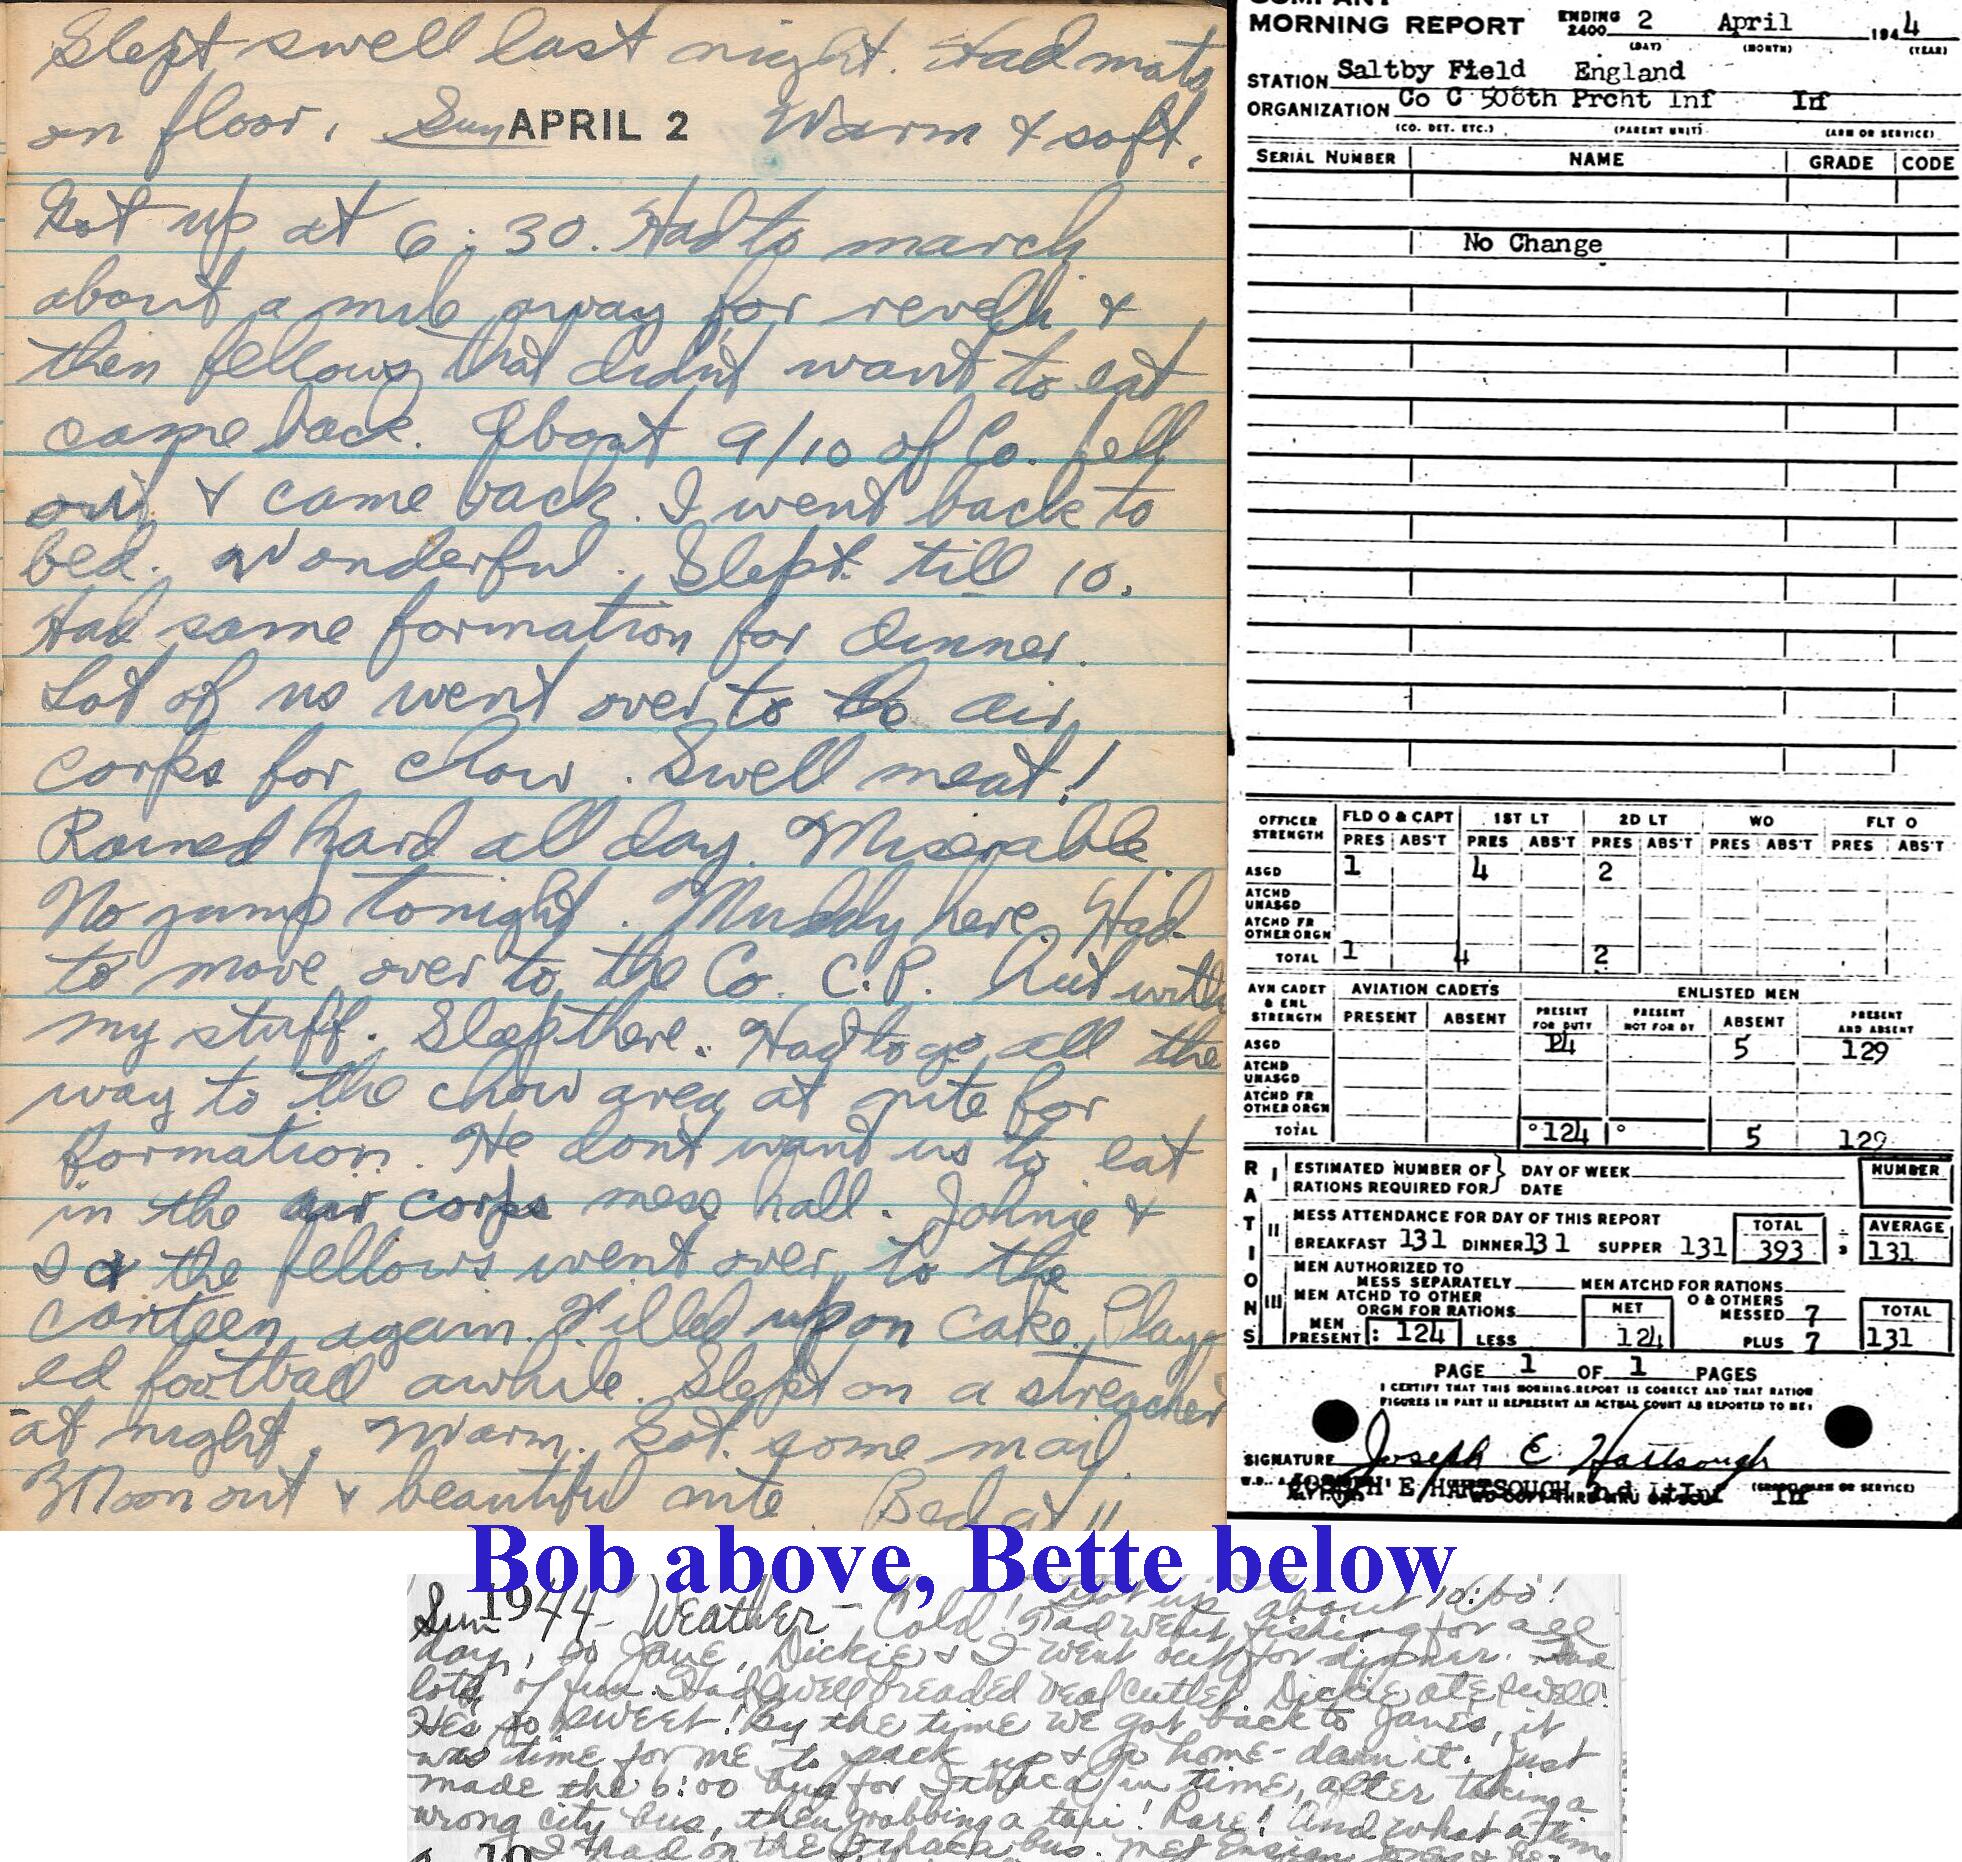 Slept swell last night. Had mats
on floor. Sun APRIL 2 Warm & soft.
Got up at 6:30. Had to march
about a mile away for revelli &
then fellows that didn't want to eat
came back. About 9/10 of Co. fell
out & came back. I went back to
bed. Wonderful. Slept till 10.
Had same formation for dinner.
Lot of us went over to the air
corps for chow. Swell meat!
Rained hard all day. Miserable.
No jump tonight. Muddy here. Had
to move over to the Co. C.P. hut with
my stuff. Sleep there. Had to go all the
way to the chow area at nite for
formation. He dont want us to eat
in the air corps mess hall. Johnie &
I & the fellows went over to the
canteen again. Filled up on cake. Play-
ed football awhile. Slept on a streacher
at night. Warm. Got some mail.
Moon out & beautiful nite Bed at 11
COMPANY
MORNING REPORT ENDING 2400 2 April 1944
(DAY) (MONTH) (YEAR)
STATION Saltby Field England
ORGANIZATION Co C 508th Prcht Inf Inf
(CO. DET. ETC.) (PARENT UNIT) (ARM OR SERVICE)
SERIAL NUMBER NAME GRADE CODE
No Change
OFFICER STRENGTH FLD O & CAPT 1ST LT 2D LT WO FLT O
PRES ABS'T PRES ABS'T PRES ABS'T PRES ABS'T PRES ABS'T
ASGD 1 4 2
ATCHD UNASGD
ATCHD FR OTHER ORGN
TOTAL 1 4 2
AVN CADET & ENL STRENGTH AVIATION CADETS ENLISTED MEN
PRESENT ABSENT PRESENT FOR DUTY PRESENT NOT FOR DY ABSENT PRESENT AND ABSENT
ASGD 5 129
ATCHD UNASGD
ATCHD FR OTHER ORGN
TOTAL 124 5 129
RATIONS
I ESTIMATED NUMBER OF RATIONS REQUIRED FOR DAY OF WEEK DATE NUMBER
II MESS ATTENDANCE FOR DAY OF THIS REPORT TOTAL AVERAGE
BREAKFAST 131 DINNER 131 SUPPER 131 393 ÷ 3 131
III MEN AUTHORIZED TO MESS SEPARATELY MEN ATCHD FOR RATIONS
MEN ATCHD TO OTHER ORGN FOR RATIONS NET O & OTHERS MESSED 7 TOTAL
MEN PRESENT: 124 LESS 124 PLUS 7 131
PAGE 1 OF 1 PAGES
I CERTIFY THAT THIS MORNING REPORT IS CORRECT AND THAT RATION
FIGURES IN PART II REPRESENT AN ACTUAL COUNT AS REPORTED TO ME:
SIGNATURE Joseph E. Hartsough
JOSEPH E HARTSOUGH 2nd Lt Inf
Bob above, Bette below
Sun 1944 - WEATHER - Cold! Got up about 10:00!
Dad went fishing for all
day, so Jane, Dickie & I went out for dinner. Had
lots of fun. Had swell breaded veal cutlet. Dickie ate swell!
He's so sweet! By the time we got back to Jane's, it
was time for me to pack up & go home - damn it. Just
made the 6:00 bus for Ithaca in time, after taking a
wrong city bus, then grabbing a taxi! Rare! And what a time
I had on the Ithaca bus. Met Ensign